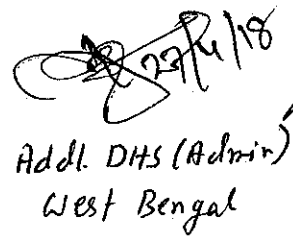 23/4/18
Addl. DHS (Admin)
West Bengal